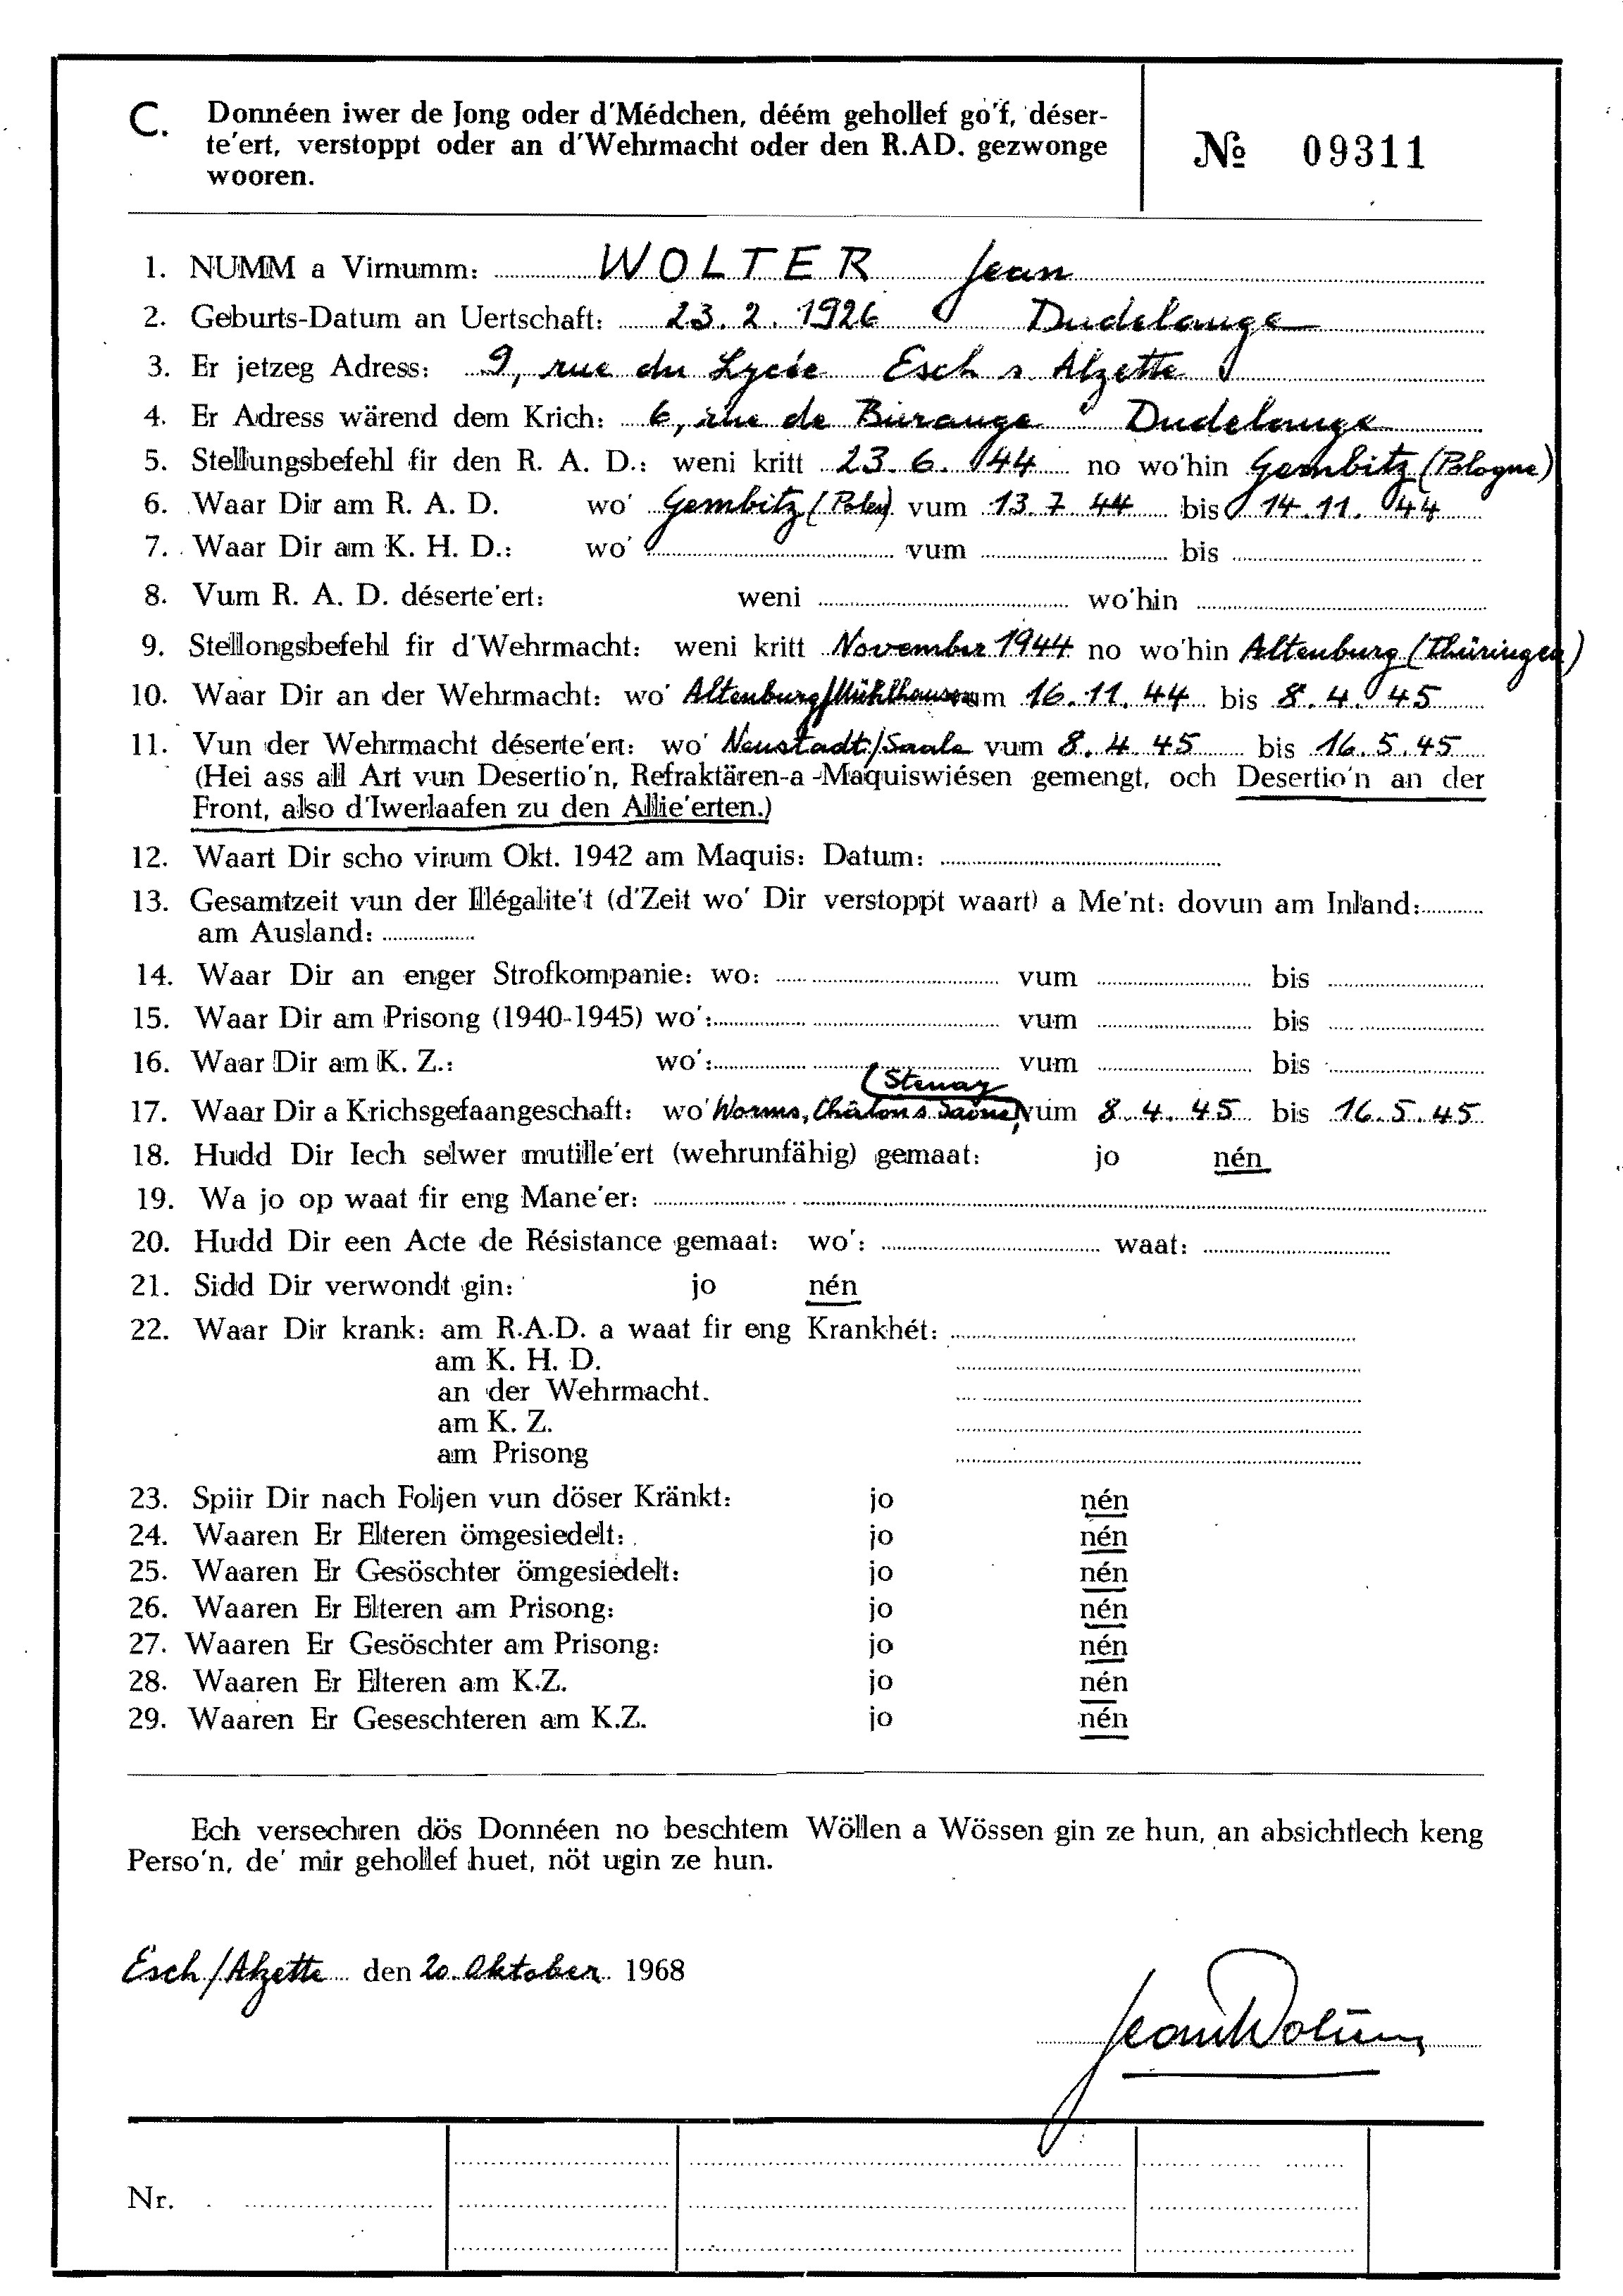 C. Donnéen iwer de Jong oder d'Médchen, déém gehollef go'f, déser-
te'ert, verstoppt oder an d'Wehrmacht oder den R.AD. gezwonge
wooren.
№ 09311
1. NUMM a Virnumm: WOLTER Jean
2. Geburts-Datum an Uertschaft: 23.2.1926 Dudelange
3. Er jetzeg Adress: 9, rue du Lycée Esch s Alzette
4. Er Adress wärend dem Krich: 6, rue de Burange Dudelange
5. Stellungsbefehl fir den R. A. D.: weni kritt 23.6.44 no wo'hin Gembitz (Pologne)
6. Waar Dir am R. A. D. wo' Gembitz (Polen) vum 13.7.44 bis 14.11.44
7. Waar Dir am K. H. D.: wo' vum bis
8. Vum R. A. D. déserte'ert: weni wo'hin
9. Stellongsbefehl fir d'Wehrmacht: weni kritt November 1944 no wo'hin Altenburg (Thüringen)
10. Waar Dir an der Wehrmacht: wo' Altenburg/Mühlhausen vum 16.11.44 bis 8.4.45
11. Vun der Wehrmacht déserte'ert: wo' Neustadt/Saale vum 8.4.45 bis 16.5.45
(Hei ass all Art vun Desertio'n, Refraktären-a -Maquiswiésen gemengt, och Desertio'n an der
Front, also d'Iwerlaafen zu den Allie'erten.)
12. Waart Dir scho virum Okt. 1942 am Maquis: Datum:
13. Gesamtzeit vun der Illégalite't (d'Zeit wo' Dir verstoppt waart) a Me'nt: dovun am Inland:
am Ausland:
14. Waar Dir an enger Strofkompanie: wo: vum bis
15. Waar Dir am Prisong (1940-1945) wo': vum bis
16. Waar Dir am K. Z.: wo': vum bis
(Stenay
17. Waar Dir a Krichsgefaangeschaft: wo' Worms, Châlon s Saône, vum 8.4.45 bis 16.5.45
18. Hudd Dir Iech selwer mutille'ert (wehrunfähig) gemaat: jo nén
19. Wa jo op waat fir eng Mane'er:
20. Hudd Dir een Acte de Résistance gemaat: wo': waat:
21. Sidd Dir verwondt gin: jo nén
22. Waar Dir krank: am R.A.D. a waat fir eng Krankhét:
am K. H. D.
an der Wehrmacht.
am K. Z.
am Prisong
23. Spiir Dir nach Foljen vun döser Kränkt: jo nén
24. Waaren Er Elteren ömgesiedelt: jo nén
25. Waaren Er Gesöschter ömgesiedelt: jo nén
26. Waaren Er Elteren am Prisong: jo nén
27. Waaren Er Gesöschter am Prisong: jo nén
28. Waaren Er Elteren am K.Z. jo nén
29. Waaren Er Geseschteren am K.Z. jo nén
Ech versechren dös Donnéen no beschtem Wöllen a Wössen gin ze hun, an absichtlech keng
Perso'n, de' mir gehollef huet, nöt ugin ze hun.
Esch/Alzette den 20. Oktober 1968
Jean Wolter
Nr.